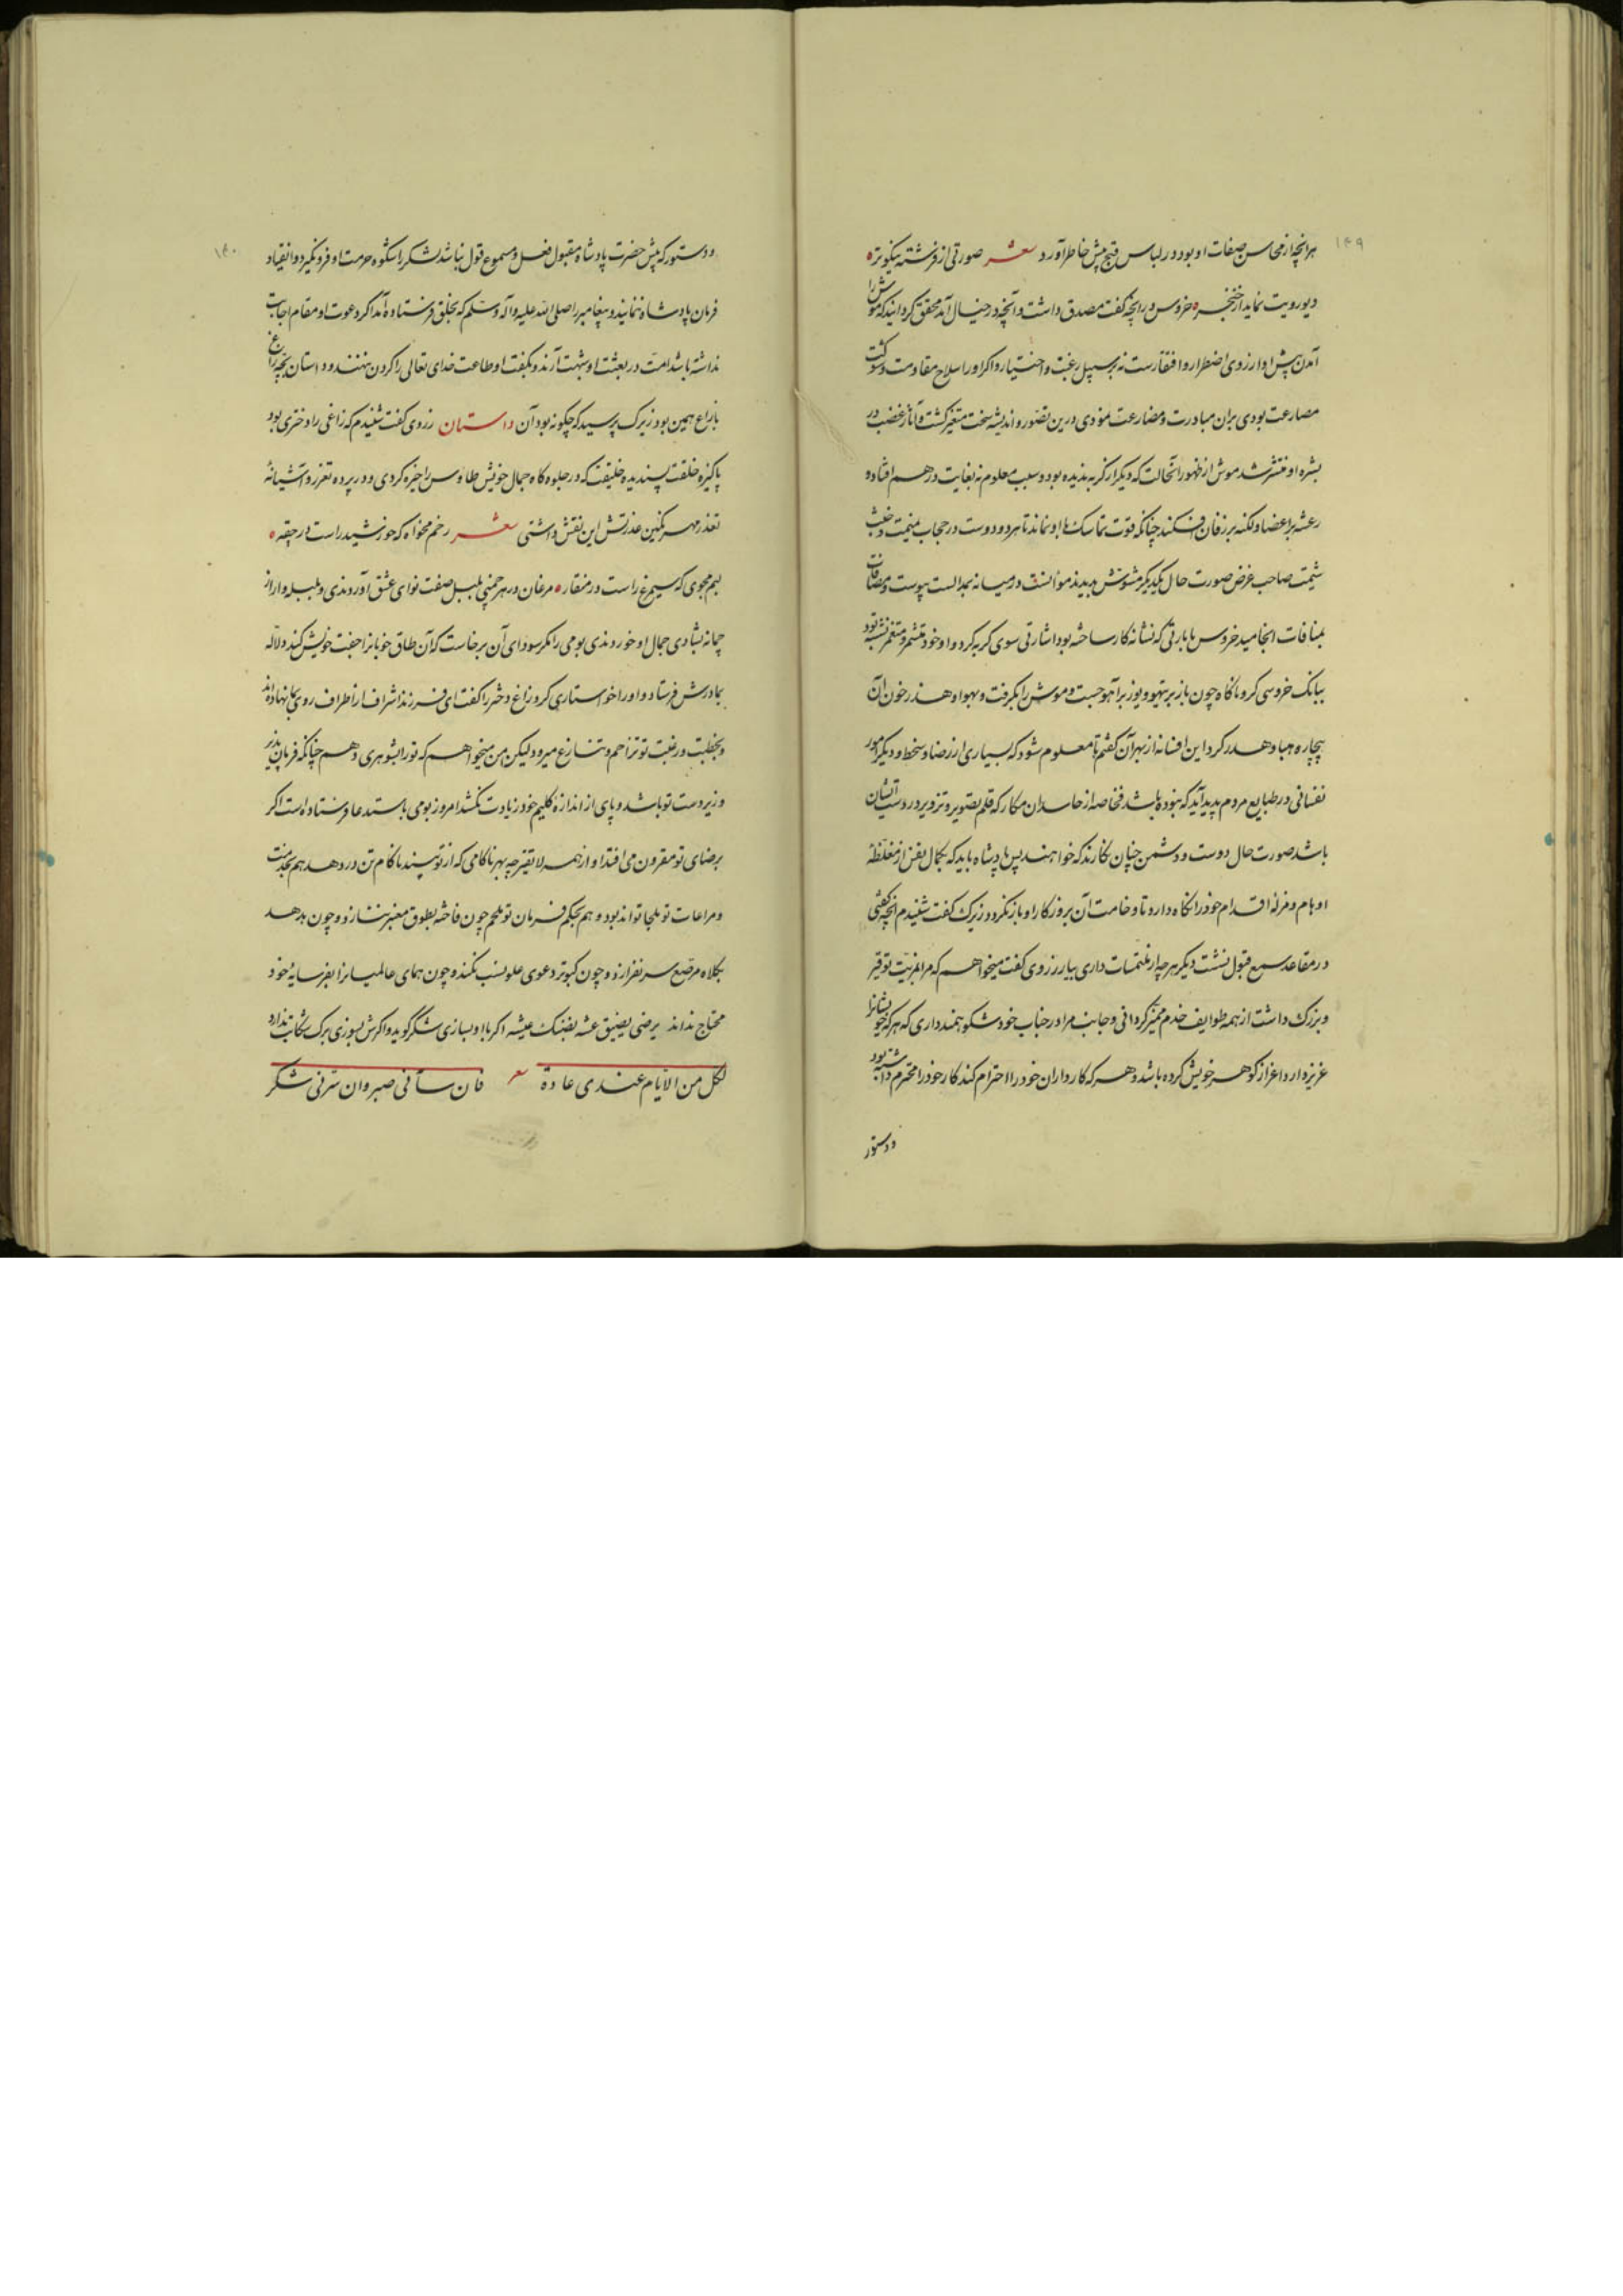 ۱۴۹
هرانچه از محاسن صفات او بود در لباس قبح پیش خاطر آورد شعر صورتی از فرشته نیکوتر
دیو رویت نماید از خنجر خروس را آنچه گفت مصدق داشت و آنچه در خیال آمد محقق گردانید که موش را
آمدن پیش او از روی اضطرار و افتقارست نه بر سبیل رغبت و اختیار و اگر او را سلاح مقاومت و شوکت
مصارعت بودی بران مبادرت و مسارعت نمودی درین تصور و اندیشه سخت متغیر گشت و آثار غضب در
بشره او منتشر شد موش از ظهور آنحالت که دیگر از گربه ندیده بود و سبب معلوم نه بغایت در هم افتاد و
رعشه بر اعضا و لکنه بر زفان افکند چنانکه قوت تماسک با او نماند تا هر دو دوست در حجاب نمیمت و خبث
شیمت صاحب غرض صورت حال یکدیگر مشوش بدیدند موالفت در میانه بمدالست پیوست و مصافات
بمنافات انجامید خروس با بارتی که نشانه کار ساخته بود اشارتی سوی گربه کرد و او خود متشمر و متغمر نشسته بود
ببانک خروسی گربه ناگاه چون باز بر تیهو و یوز بر آهو جست و موش را بگرفت و بهوا و هدر خون آن
بیچاره هبا و هدر کرد این افسانه از بهر آن گفتم تا معلوم شود که بسیاری از رضا و سخط و دیگر امور
نفسانی در طبایع مردم پدید آید که نبوده باشد فخاصه از حاسدان مکار که قلم تصویر و تزویر در دست ایشان
باشد صورت حال دوست و دشمن چنان نگارند که خواهند پس پادشاه باید که بکمال نفس از مغلطه
اوهام و مزله اقدام خود را نگاه دارد تا وخامت آن بروزگار او باز نگردد زیرک گفت شنیدم آنچه گفتی
در مقاعد سمع قبول نشست دیگر هر چه از ملتمسات داری بیار زروی گفت میخواهم که مرا بمزیت توقیر
و بزرک داشت از همه طوایف خدم ممیز گردانی و جانب مرا در جناب خود مشکوه‌مند داری که هر که خویشانرا
عزیز دارد اعزاز گوهر خویش کرده باشد و هر که کارداران خود را احترام کند کار خود را محترم داشته بود
و دستور
۱۵۰
و دستور که پیش حضرت پادشاه مقبول فعل و مسموع قول نباشد لشکر را شکوه حرمت او فرو نگیرد و انقیاد
فرمان پادشاه ننمایند و پیغامبر را صلی الله علیه و آله و سلم که بخلق فرستاده آمد اگر دعوت او مقام اجابت
نداشته باشد امت در بعثت او بشبهت آرند و بگفت او طاعت خدای تعالی را گردن ننهند و داستان بچه زاغ
با زاغ همین بود زیرک پرسید که چگونه بود آن داستان زروی گفت شنیدم که زاغی را دختری بود
پاکیزه خلقت پسندیده خلیقت که در جلوه‌گاه جمال خویش طاوس را خیره کردی و در پرده تعزز و آشیانهٔ
تعذر مهر نگین عذرتش این نقش داشتی شعر رخم مخواه که خورشید راست در حقه
لبم مجوی که سیمرغ راست در منقار مرغان در هر چمنی بلبل صفت نوای عشق آوردندی و بلبله وار از
چمانه بشادی جمال او خوردندی بومی را مگر سودای آن برخاست که آن طاق خوبانرا جفت خویش کند دلاله
بمادرش فرستاد و او را خواستاری کرد زاغ دختر را گفت ای فرزند اشراف از اطراف روی بما نهاده‌اند
و بخطبت و رغبت تو تزاحم و تنازع میرود ولیکن من میخواهم که تو را بشوهری دهم چنانکه فرمان پذیر
و زیر دست تو باشد و پای از اندازه گلیم خود زیادت نکشد امروز بومی باستدعا فرستاده است اگر
برضای تو مقرون می افتد او از همه لایقتر چه بهر ناکامی که از تو بیند ناکام تن در دهد هم بخدمت
و مراعات تو ملجا تواند بود و هم بحکم فرمان تو ملجم چون فاخته بطوق معنبر ننازد و چون هدهد
بکلاه مرصع سر نفرازد و چون کبوتر دعوی علو نسب نکند و چون همای عالمیانرا بفر سایهٔ خود
محتاج نداند یرضی بضیق عشه بضنک عیشه اگر با او بسازی شکر گوید و اگرش بسوزی برک شکایت ندارد
لکل من الایام عندی عادة شعر فان ساءنی صبر و ان سرنی شکر